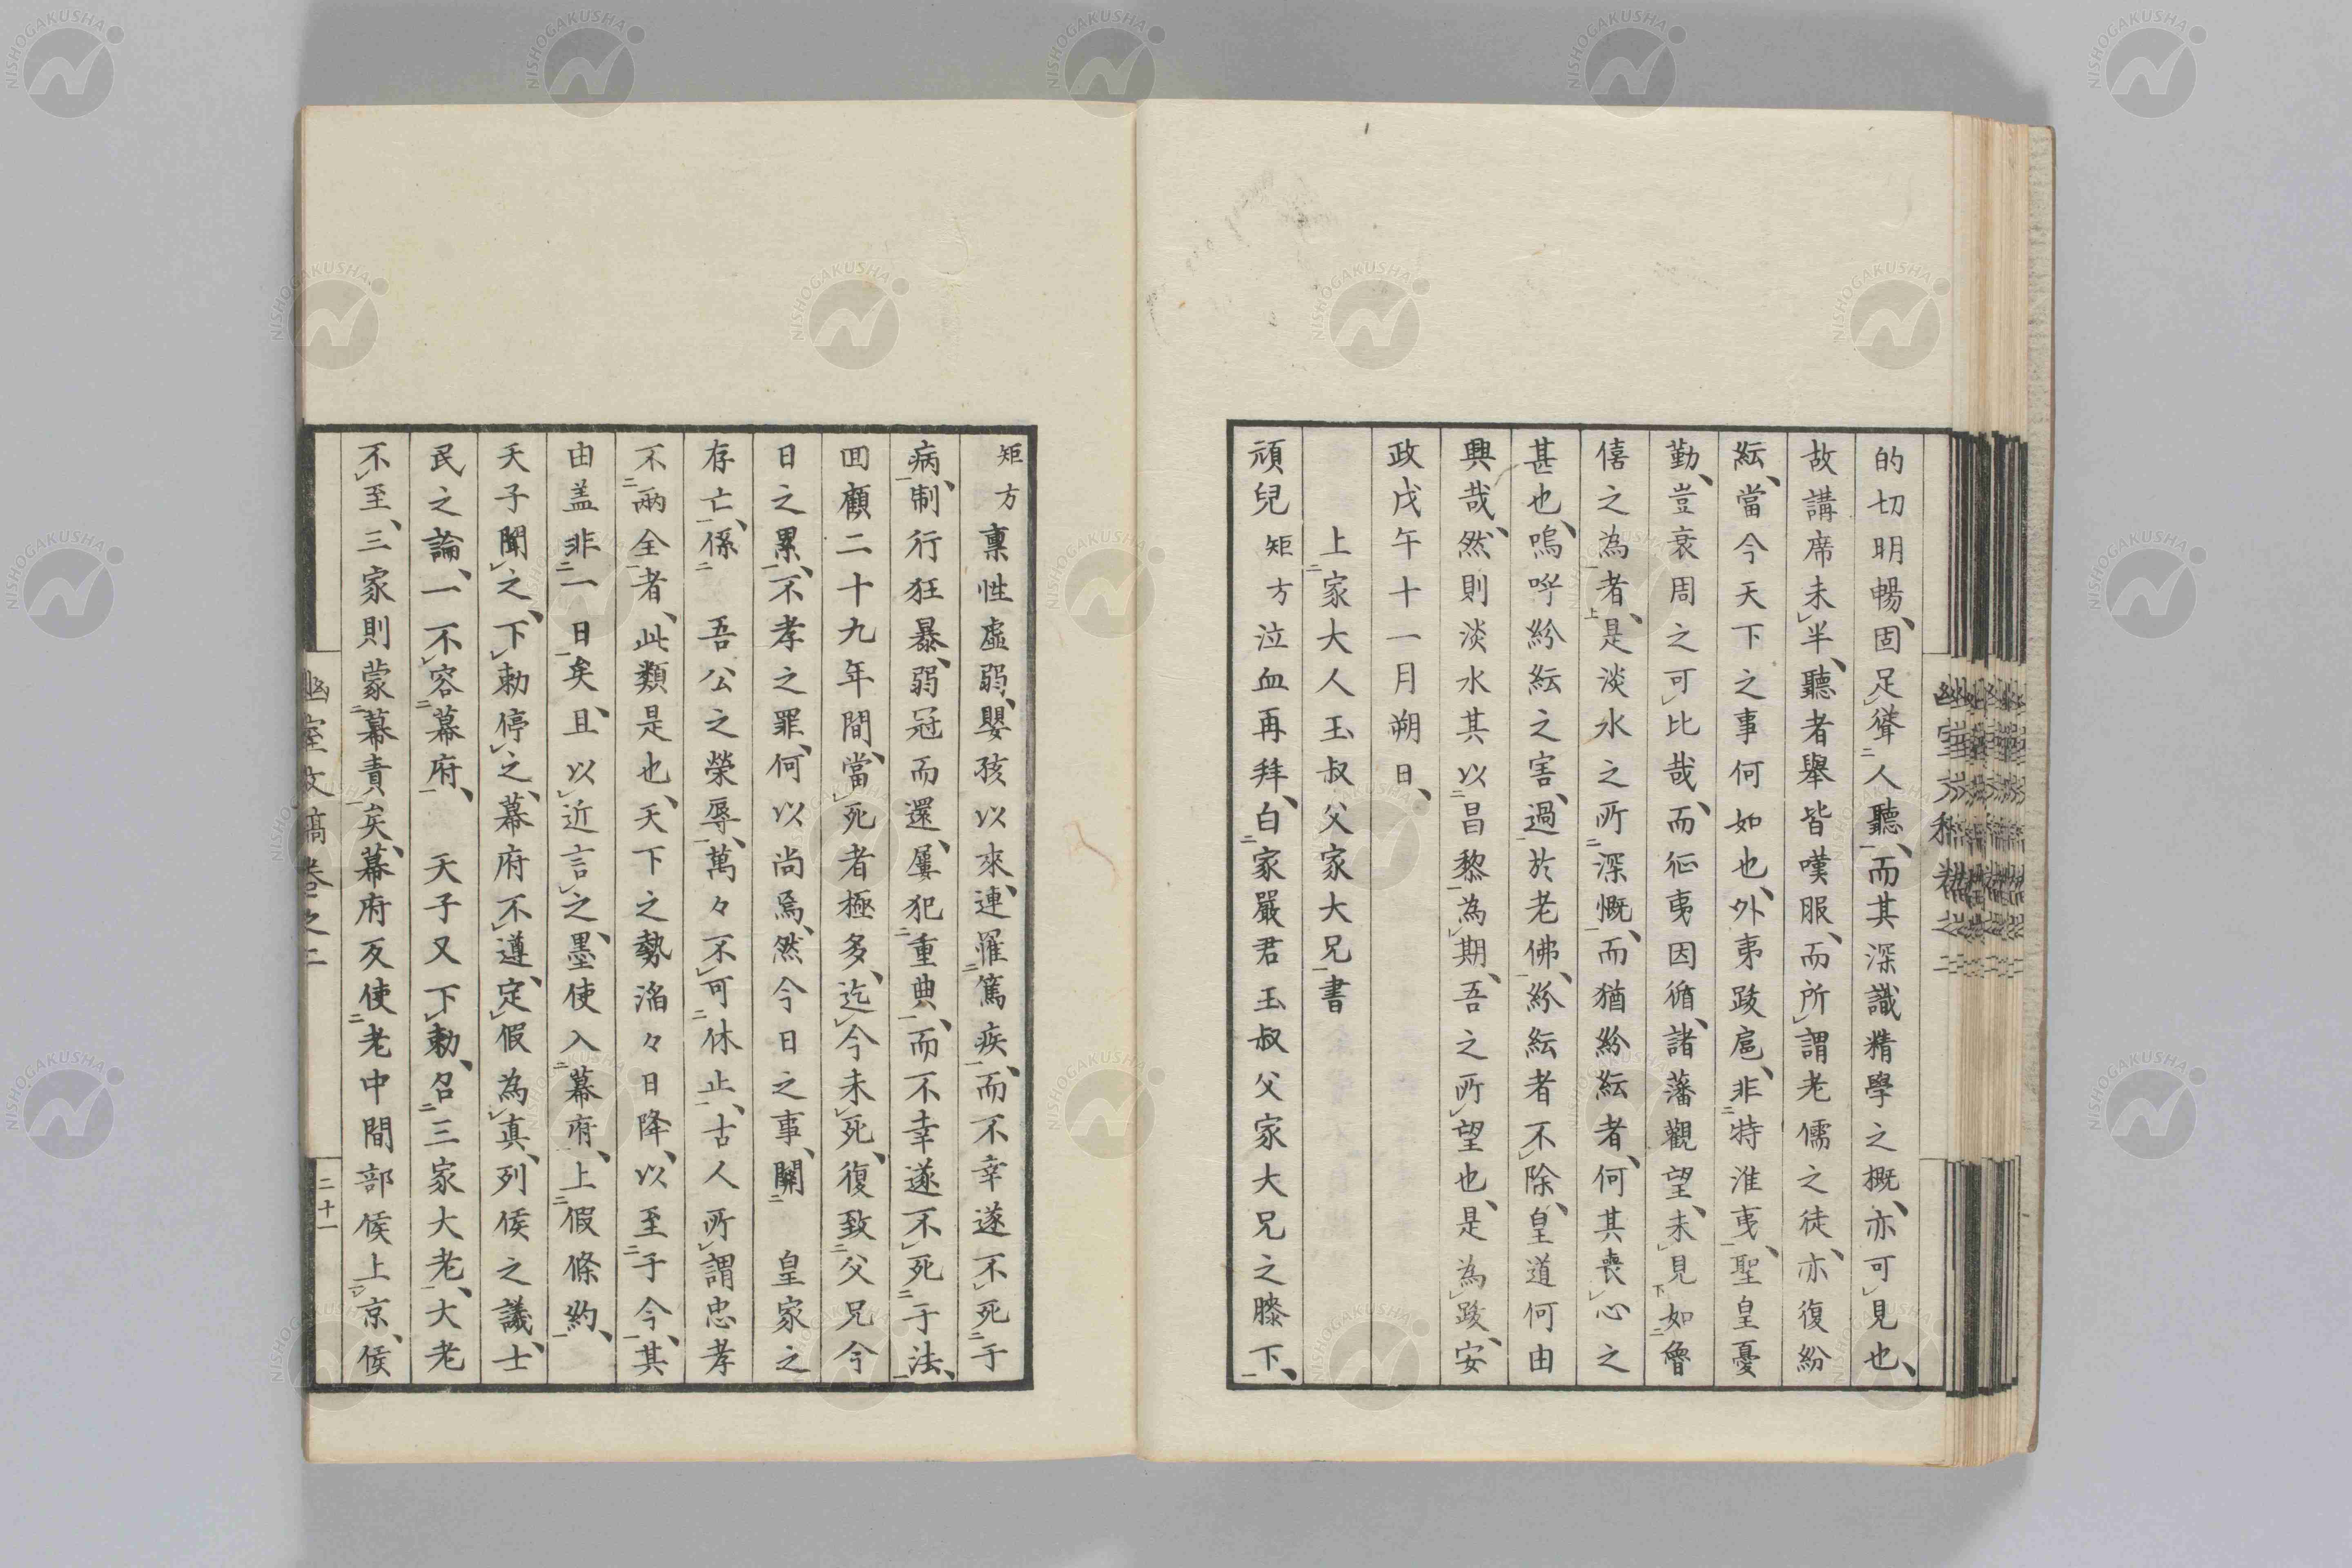 的切明暢、固足聳人聽、而其深識精學之概、亦可見也、
故講席未半、聽者舉皆嘆服、而所謂老儒之徒、亦復紛
紜、當今天下之事何如也、外夷跋扈、非特淮夷、聖皇憂
勤、豈衰周之可比哉、而征夷因循、諸藩觀望、未見如魯
僖之為者、是淡水之所深慨、而猶紛紜者、何其喪心之
甚也、嗚呼紛紜之害、過於老佛、紛紜者不除、皇道何由
興哉、然則淡水其以昌黎為期、吾之所望也、是為跋、安
政戊午十一月朔日、
上家大人玉叔父家大兄書
頑兒矩方泣血再拜、白家嚴君玉叔父家大兄之膝下、
矩方稟性虛弱、嬰孩以來、連罹篤疾、而不幸遂不死于
病、制行狂暴、弱冠而還、屢犯重典、而不幸遂不死于法、
回顧二十九年間、當死者極多、迄今未死、復致父兄今
日之累、不孝之罪、何以尚焉、然今日之事、關 皇家之
存亡、係 吾公之榮辱、萬々不可休止、古人所謂忠孝
不兩全者、此類是也、天下之勢滔々日降、以至于今、其
由盖非一日矣、且以近言之、墨使入幕府、上假條約、
天子聞之、下勅停之、幕府不遵、定假為真、列侯之議、士
民之論、一不容幕府、 天子又下勅、召三家大老、大老
不至、三家則蒙幕責矣、幕府反使老中間部侯上京、侯
幽室文稿卷之二
二十一